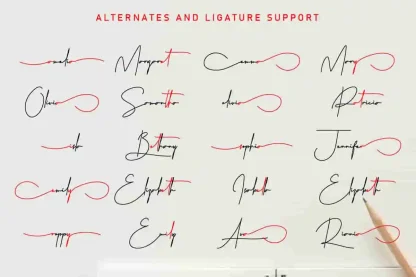 ALTERNATES AND LIGATURE SUPPORT
amelia Margaret Emma Mary
Olivia Samantha olivia Patricia
isla Bethany sophia Jennifer
emily Elizabeth Isabella Elizabeth
poppy Emily Ava